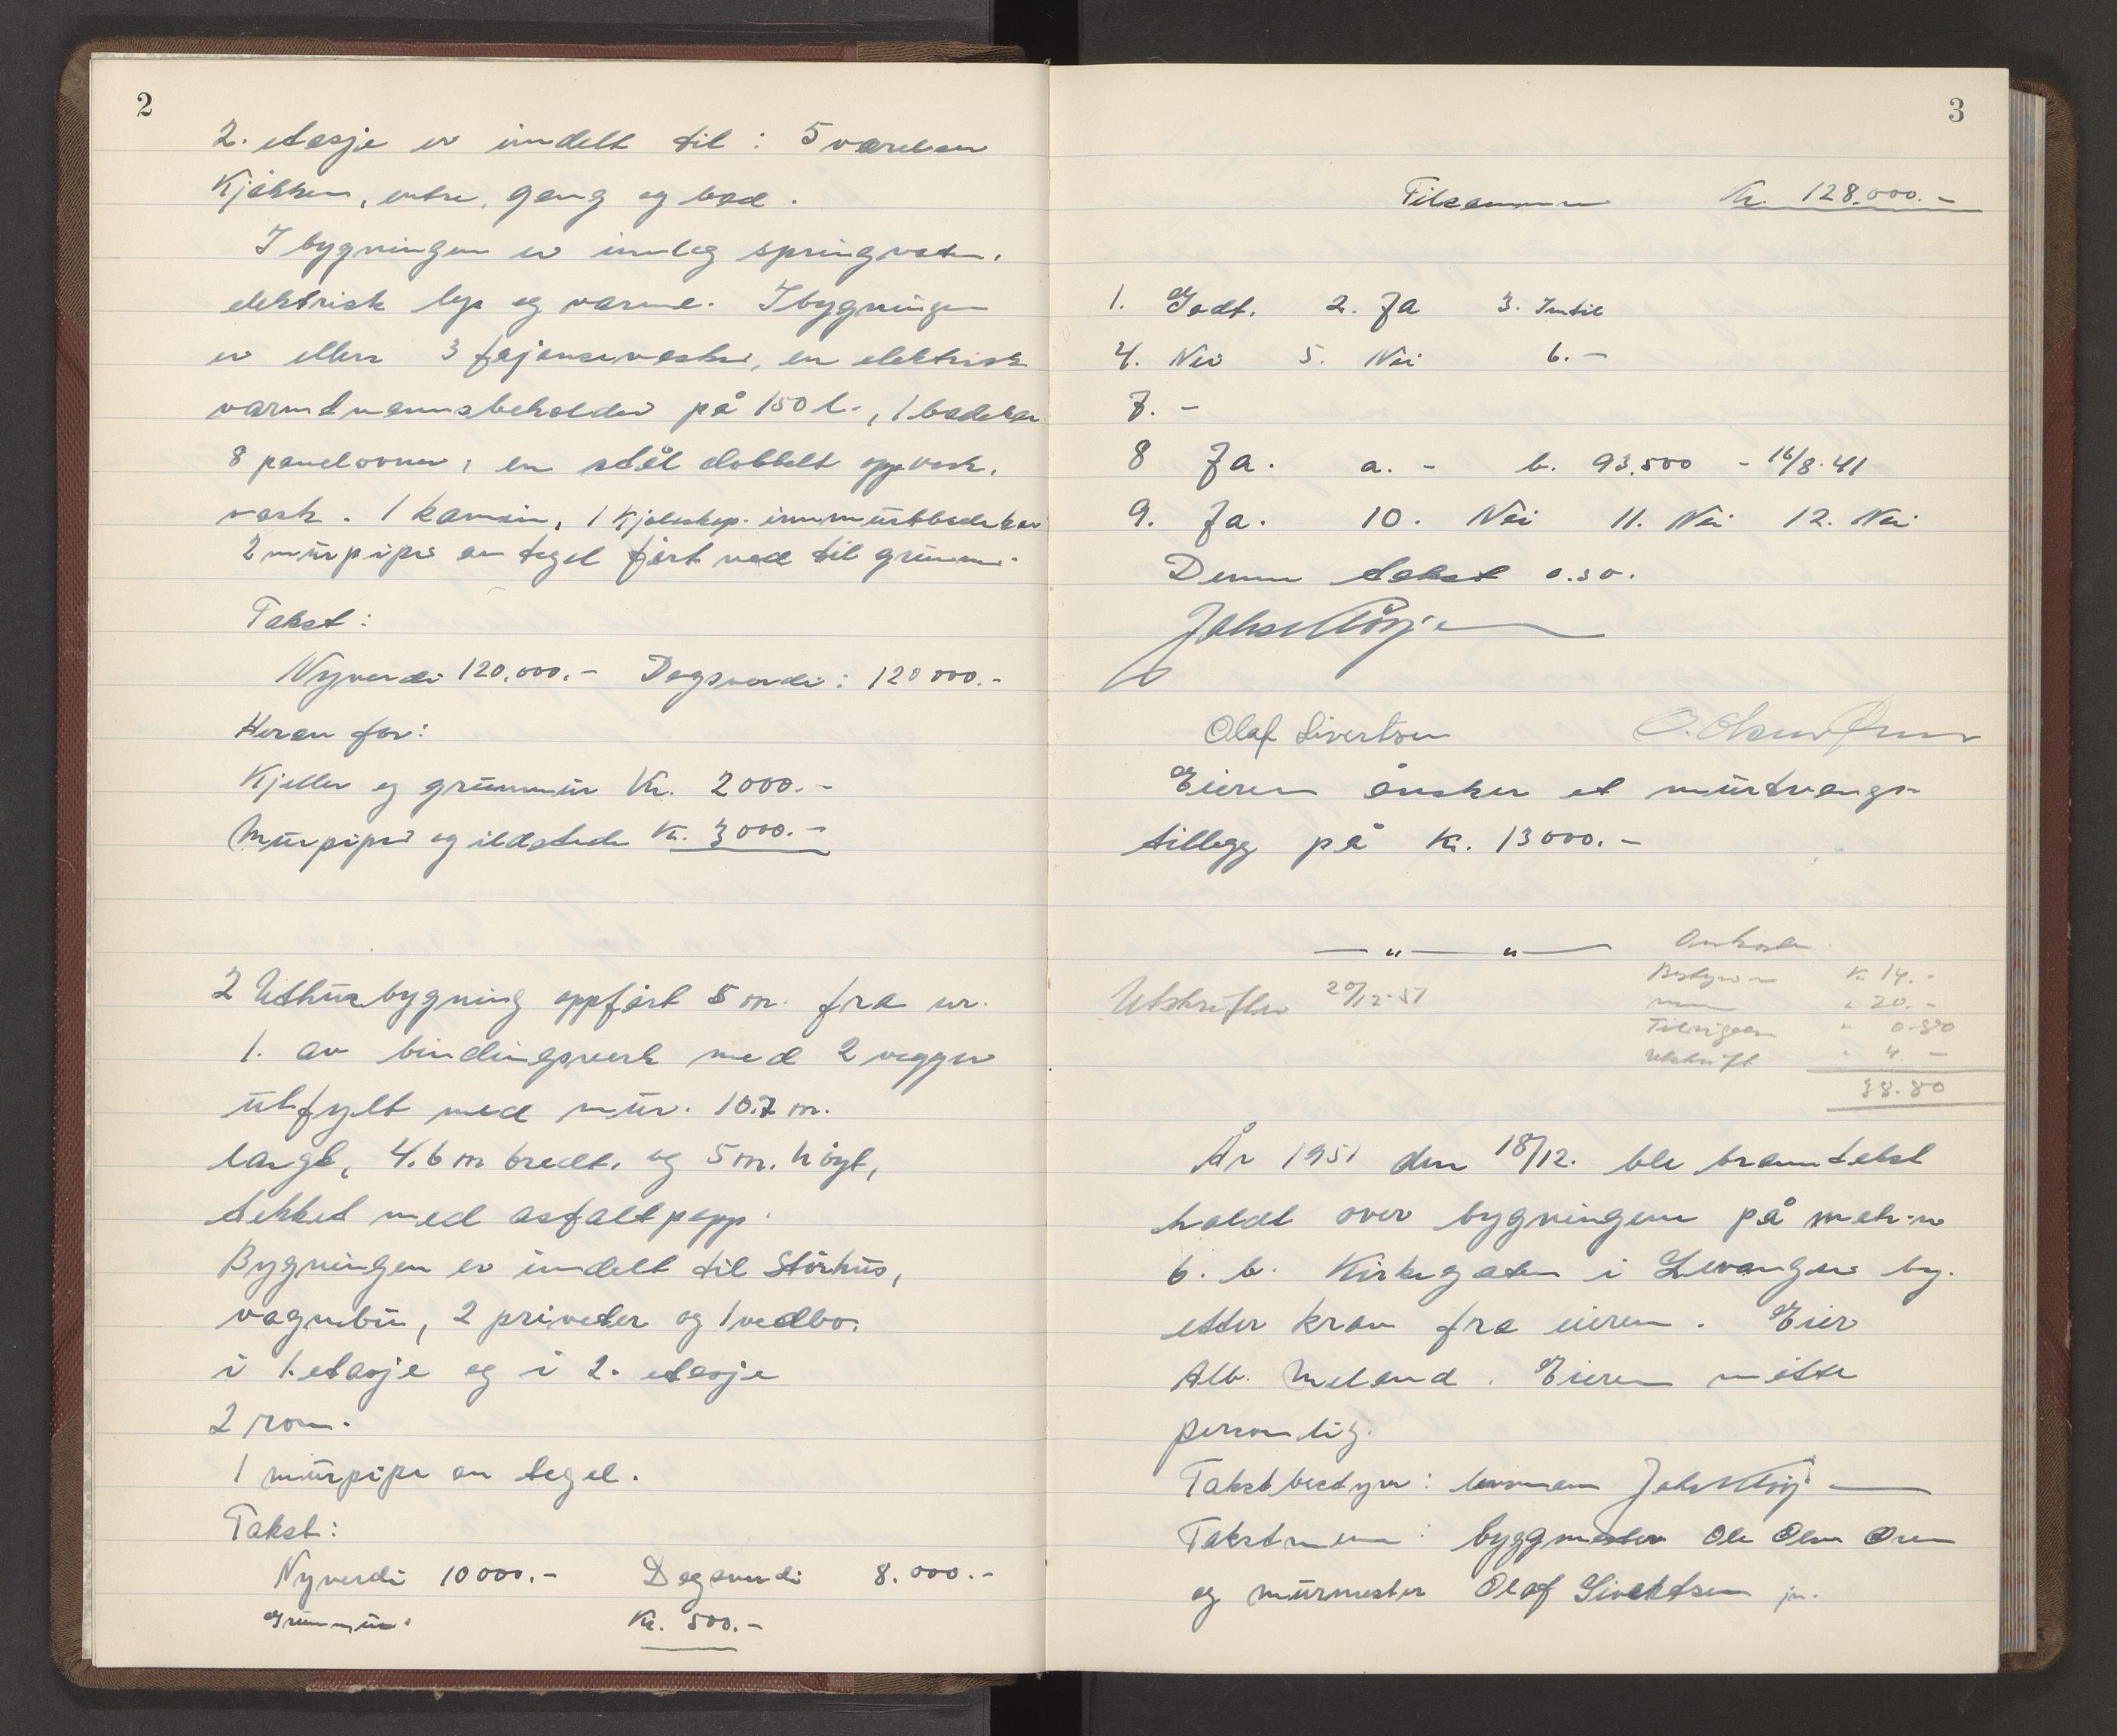 2
2. etasje er inndelt til: 5 værelser
Kjøkken, entre, gang og bad.
I bygningen er innlag springvatn,
elektrisk lys og varme. I bygningen
er ellers 3 fajansevasker, en elektrisk
varmtvannsbeholder på 150 l., 1 badekar
8 panelovner, en stål dobbelt oppvask,
vask. 1 kamin, 1 kjøleskap. innmurt badekar
2 murpiper av tegel ført ned til grunnen.
Takst:
Nyverdi 120.000.- Dagsverdi: 120 000.-
Herav for:
Kjeller og grunnmur Kr. 2000.-
Murpiper og ildsteder Kr. 3000.-
2 Uthusbygning oppført 5 m. fra nr.
1. av bindingsverk med 2 vegger
utfylt med mur. 10.7 m.
langt, 4.6 m bredt, og 5 m. høgt,
tekket med asfaltpapp.
Bygningen er inndelt til Störhus,
vognbu, 2 priveter og 1 vedbo.
i 1. etasje og i 2. etasje
2 rom.
1 murpipe av tegel.
Takst:
Nyverdi 10000.- Dagsverdi 8.000.-
Grunnmur: Kr. 500.-
3
Tilsammen Kr. 128.000.-
1. Godt. 2. Ja 3. Inntil
4. Nei 5. Nei 6. -
7. -
8 Ja. a. - b. 93.500 - 16/8.41
9. Ja. 10. Nei 11. Nei 12. Nei
Denne takst o.s.v.
Olaf Sivertsen
Eieren ønsker et murtvangs-
tillegg på Kr. 13000.-
— " — " —
Omkostn.
Bestyreren Kr. 14.-
menn " 20.-
" 0.80
Utskrift " 4.-
38.80
Utskrifter 20/12-51
År 1951 den 18/12. ble branntakst
holdt over bygningene på matr.nr
6. b. Kirkegaten i Levanger by.
etter krav fra eieren. Eier
Alb. Meland. Eieren møtte
personlig.
Takstbestyrer: lensmann
Takstmenn: byggmester Ole Olsen Øren
og murmester Olaf Sivertsen jr.